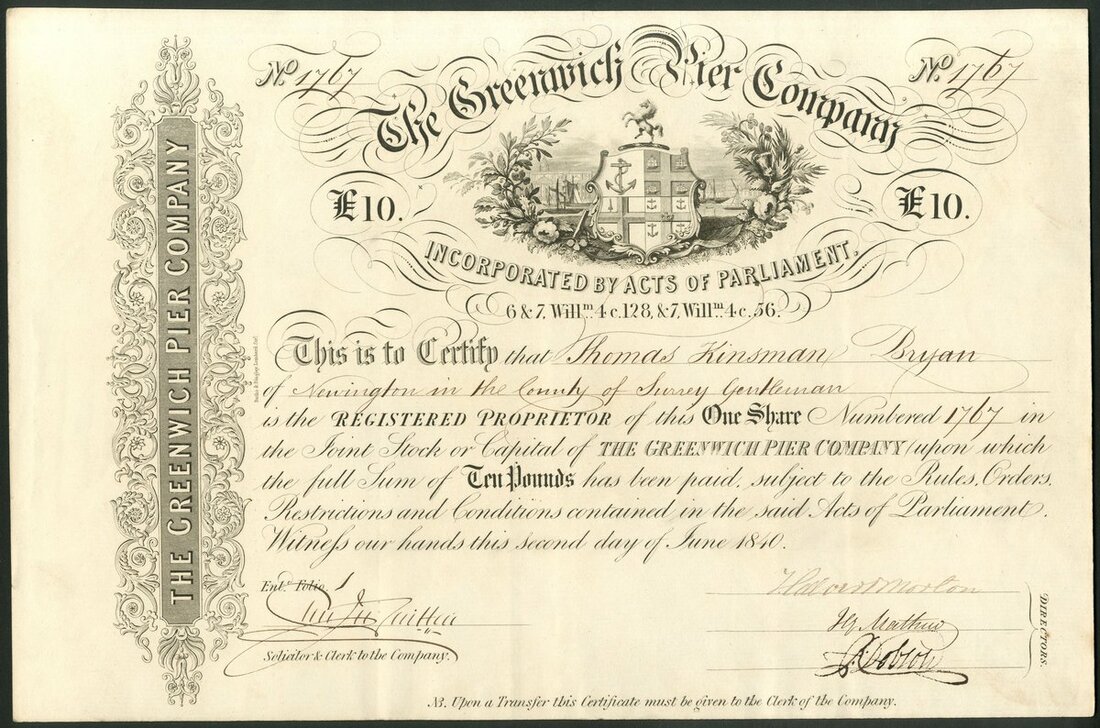 No 1767
No 1767
The Greenwich Pier Company
£10.
£10.
INCORPORATED BY ACTS OF PARLIAMENT,
6 & 7, Willm. 4 c. 128, & 7, Willm. 4 c. 56.
THE GREENWICH PIER COMPANY
This is to Certify that Thomas Kinsman Bryan
of Newington in the County of Surrey Gentleman
is the REGISTERED PROPRIETOR of this One Share Numbered 1767 in
the Joint Stock or Capital of THE GREENWICH PIER COMPANY (upon which
the full Sum of Ten Pounds has been paid, subject to the Rules, Orders,
Restrictions and Conditions contained in the said Acts of Parliament.
Witneſs our hands this second day of June 1840.
Entd. Folio 1
Solicitor & Clerk to the Company.
DIRECTORS.
NB. Upon a Transfer this Certificate must be given to the Clerk of the Company.